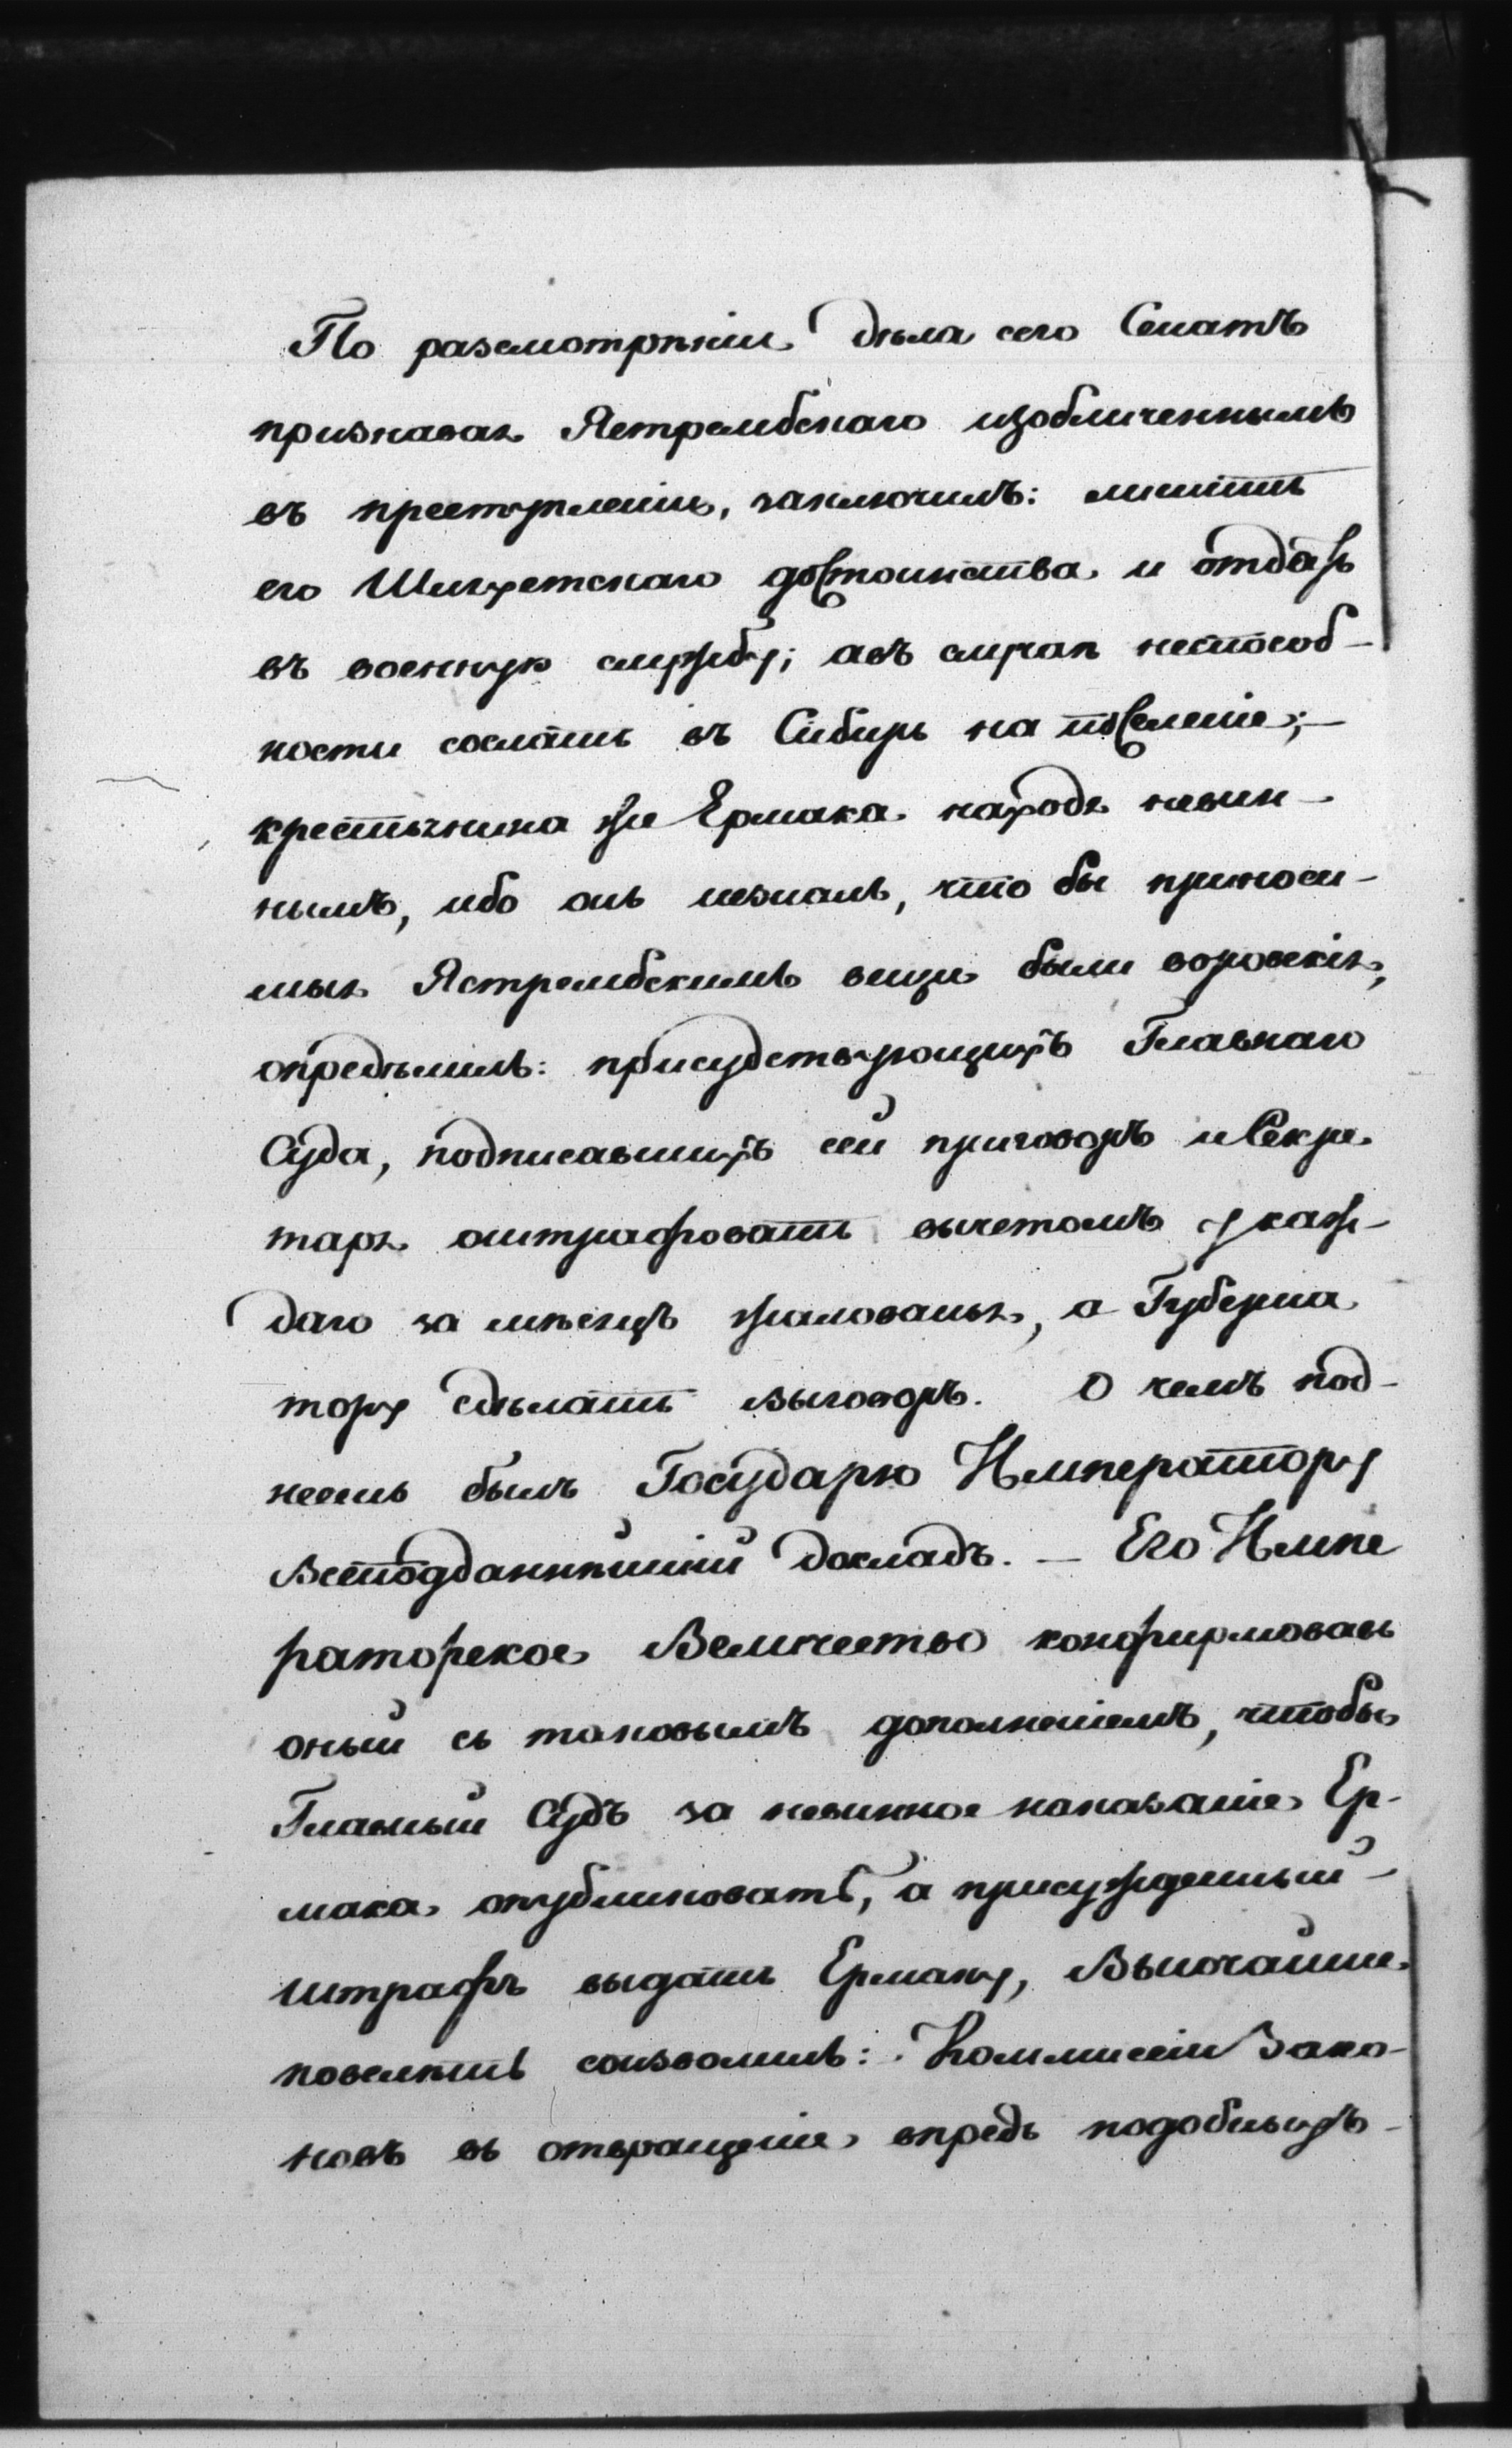 По разсмотрѣніи дѣла сего Сенатъ
признавая Ястрембскаго изобличеннымъ
въ преступленіи, заключилъ: лишить
его Шляхетскаго достоинства и отдать
въ военную службу; авъ случаѣ неспособ-
ности сослать въ Сибирь на поселеніе;-
крестьянина же Ермака находя невин-
нымъ, ибо онъ незналъ, что бы приноси-
мыя Ястрембскимъ вещи были воровскія,
опредѣлилъ: присудствующихъ Главнаго
Суда, подписавшихъ сей приговоръ и Секре
таря оштрафовать вычетомъ у каж-
даго за мѣсяцъ жалованья, а Губерна
тору сдѣлать выговоръ. О чемъ под-
несенъ былъ Государю Императору
Всеподданнѣйшій докладъ. - Его Импе
раторское Величество конфирмовавъ
оный съ таковымъ дополненіемъ, чтобы
Главный Судъ за невинное наказаніе Ер-
мака опубликовать, а присужденный
штрафъ выдать Ермаку, Высочайше
повелѣть соизволилъ: Коммисіи Зако-
новъ въ отвращеніе впредь подобныхъ